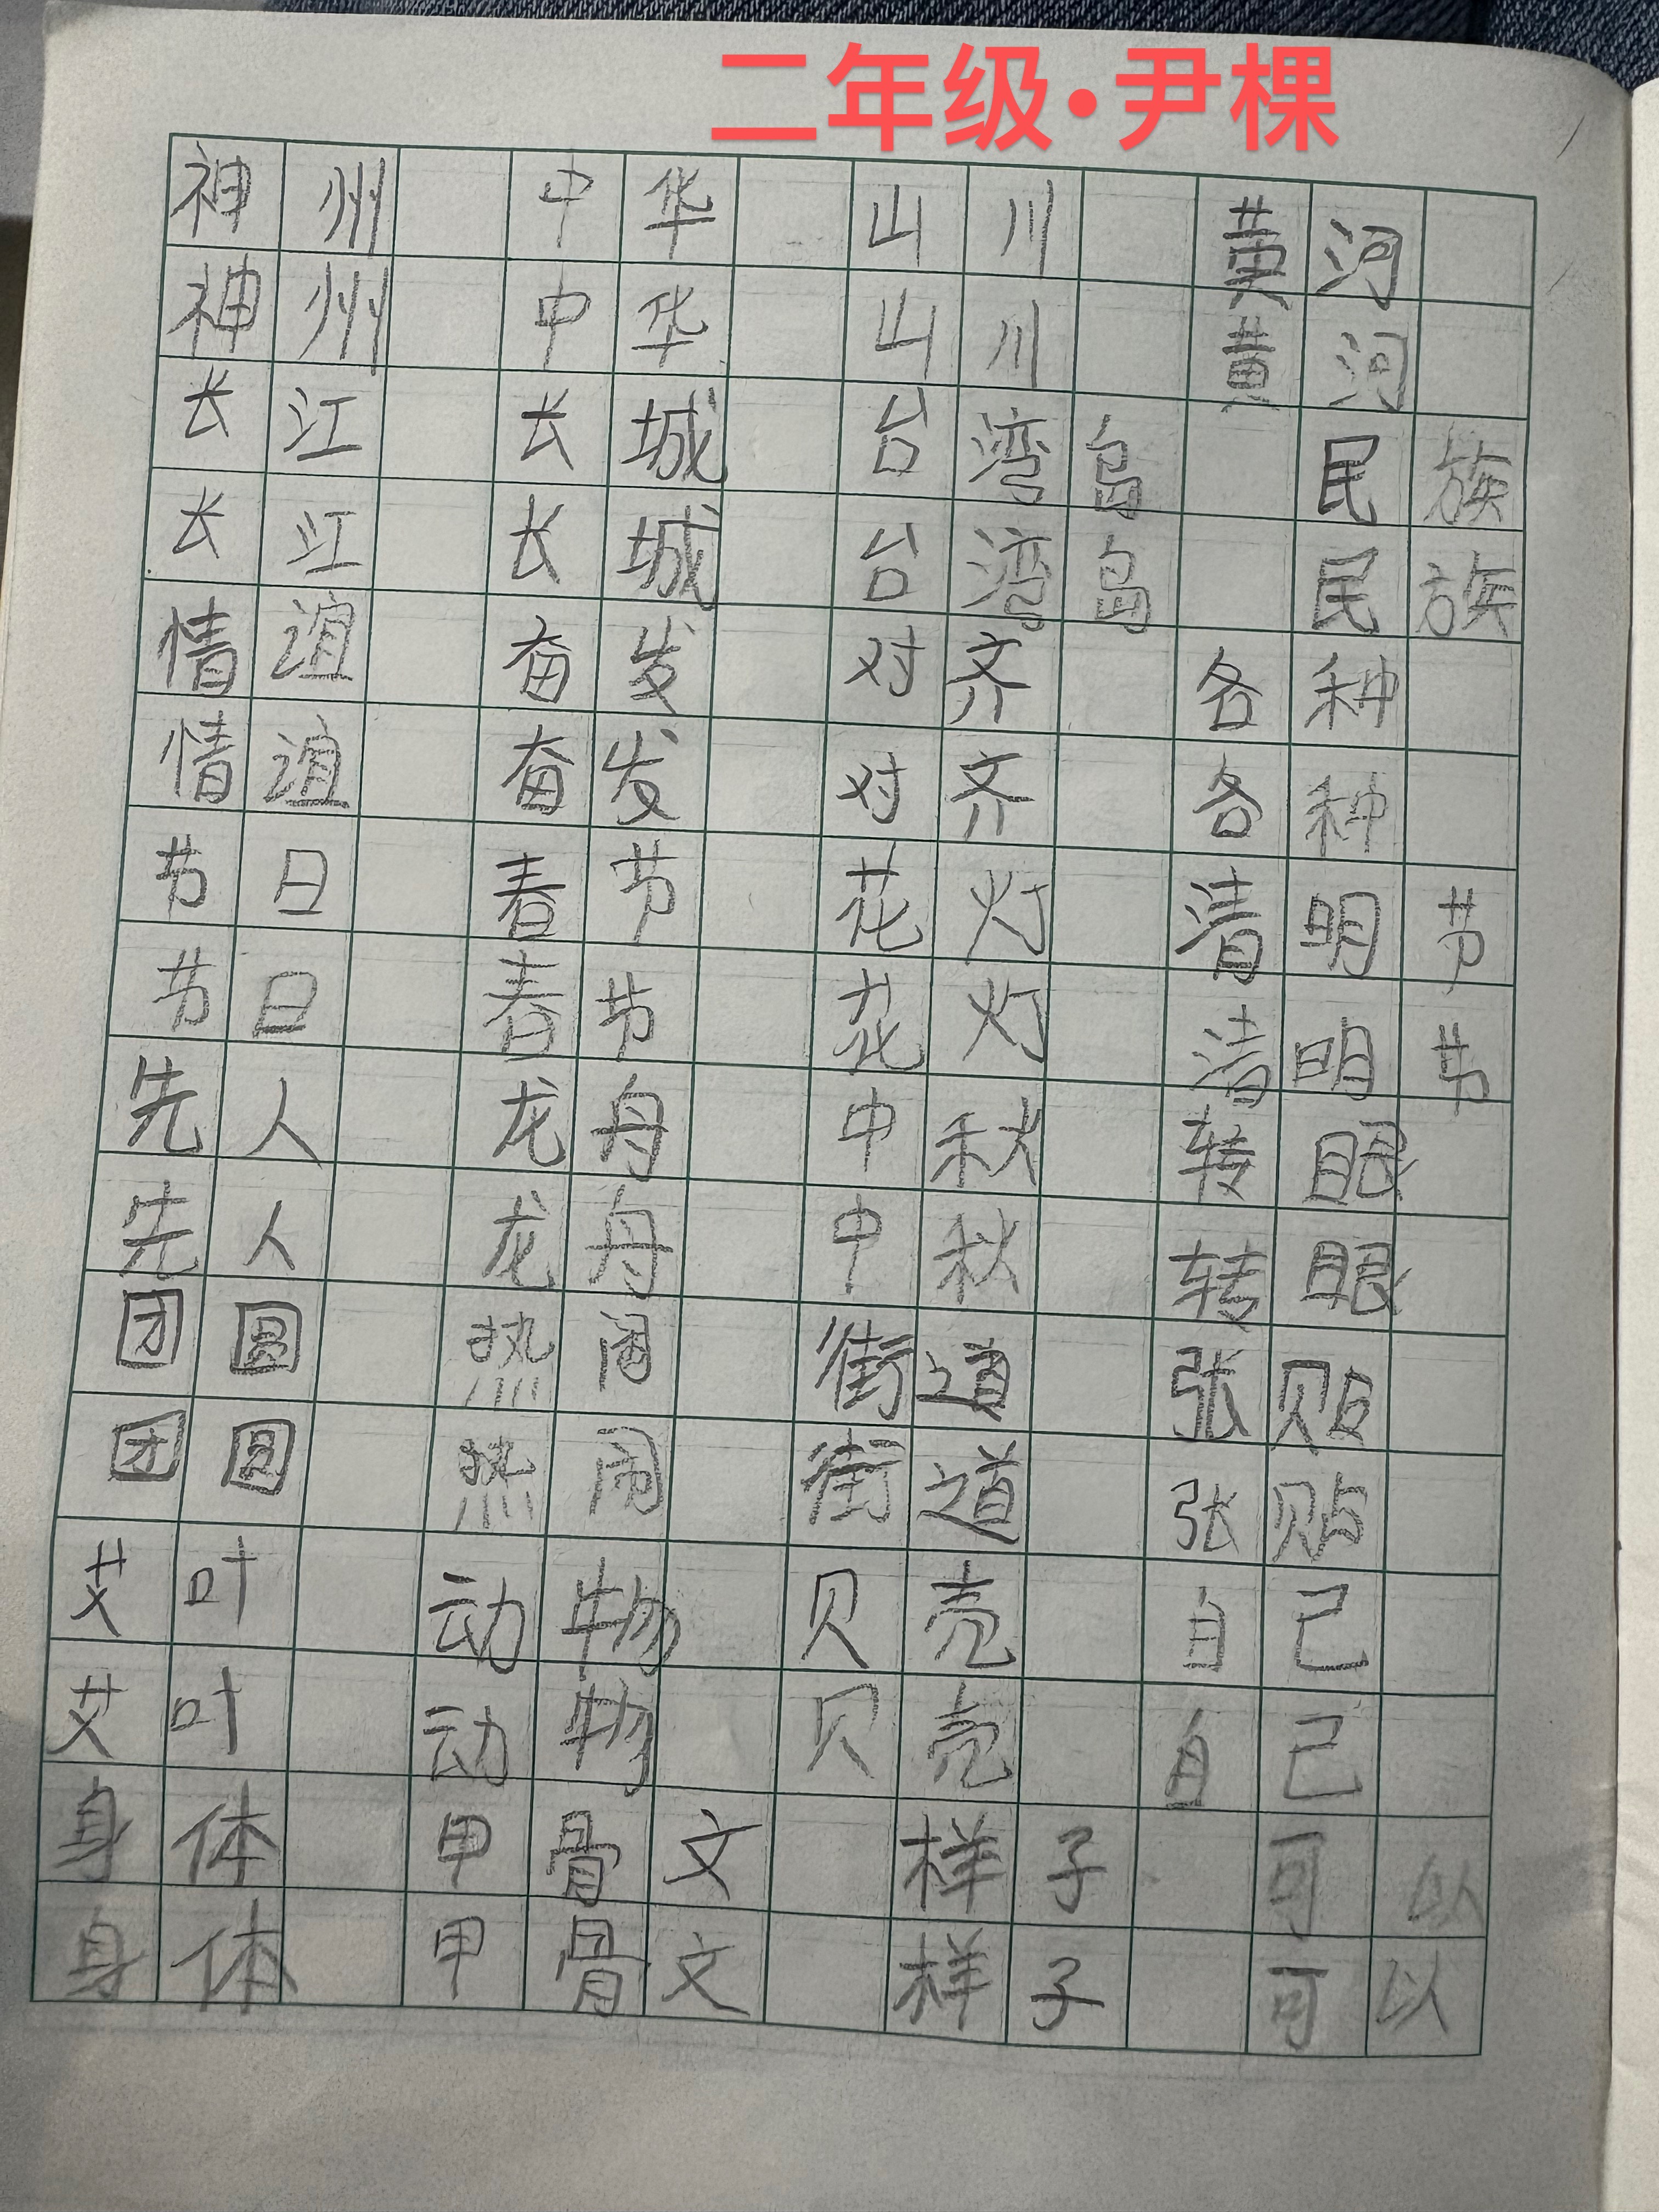 二年级·尹棵
神州 中华 山川 黄河
神州 中华 山川 黄河
长江 长城 台湾岛 民族
长江 长城 台湾岛 民族
情谊 奋发 对齐 各种
情谊 奋发 对齐 各种
节日 春节 花灯 清明节
节日 春节 花灯 清明节
先人 龙舟 中秋 转眼
先人 龙舟 中秋 转眼
团圆 热闹 街道 张贴
团圆 热闹 街道 张贴
艾叶 动物 贝壳 自己
艾叶 动物 贝壳 自己
身体 甲骨文 样子 可以
身体 甲骨文 样子 可以